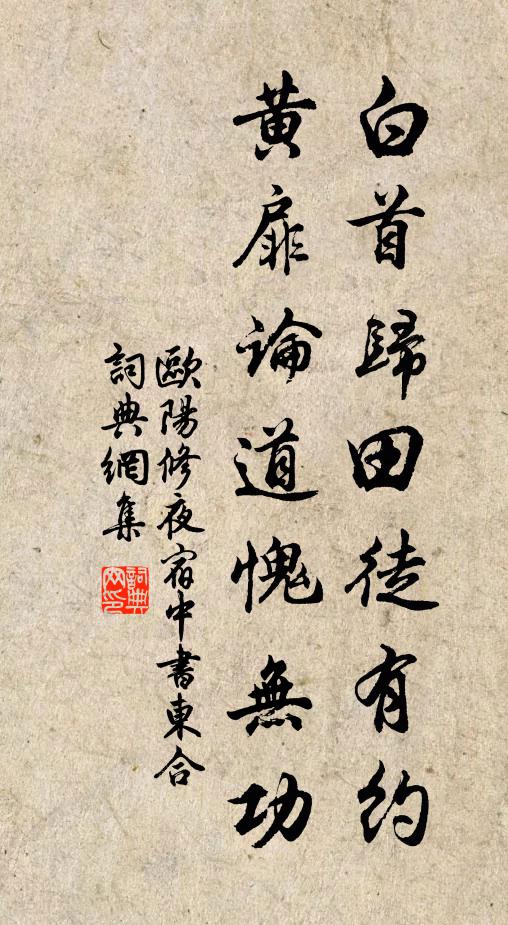 白首歸田徒有約
黃扉論道愧無功
歐陽修夜宿中書東合
詞典網集
詞典
网印